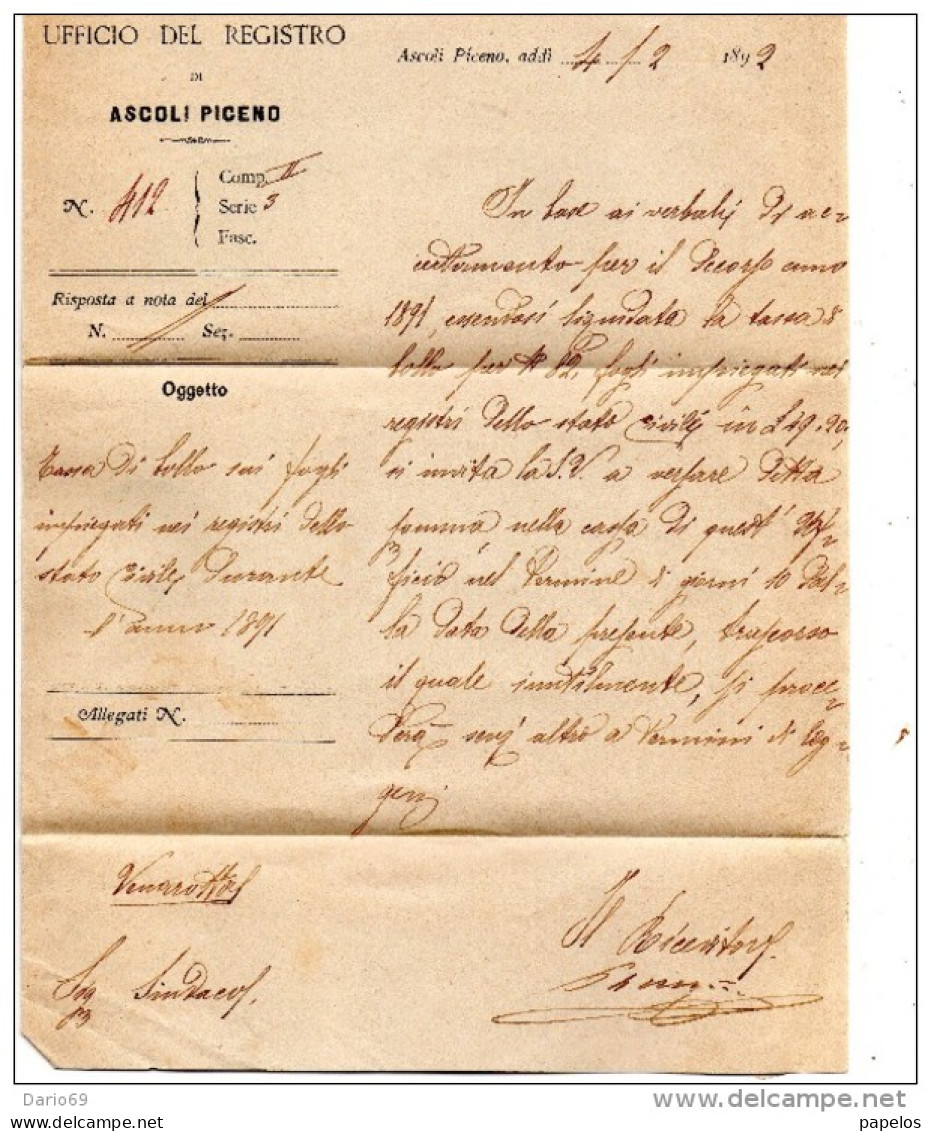 UFFICIO DEL REGISTRO
DI
ASCOLI PICENO
N. 412
Comp. II
Serie 3
Fasc.
Risposta a nota del
N. Sez.
Oggetto
Tassa di bollo sui fogli
impiegati nei registri dello
stato civile durante
l'anno 1891
Allegati N.
Ascoli Piceno, addì 4/2 1892
In base ai verbali di ac-
certamento per il decorso anno
1891, essendosi liquidata la tassa di
bollo per N 82 fogli impiegati nei
registri dello stato civile in £ 49.20,
si invita la S.V. a versare detta
somma, nella cassa di quest' Uf-
ficio nel termine di giorni 10 dal-
la data della presente, trascorso
il quale inutilmente, si proce-
derà senz' altro a termini di leg-
ge.
Il Ricevitore
Venarotta
Sig Sindaco
Dario69
delcampe.net
papelos